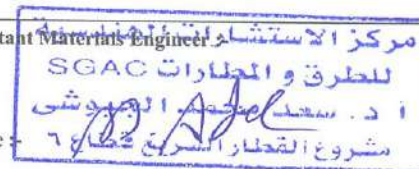 tant Materials Engineer
مركز الاستشارات الهندسية
للطرق و المطارات SGAC
أ د. سعد محمد الجيوشى
مشروع القطار السريع قطاع ٦